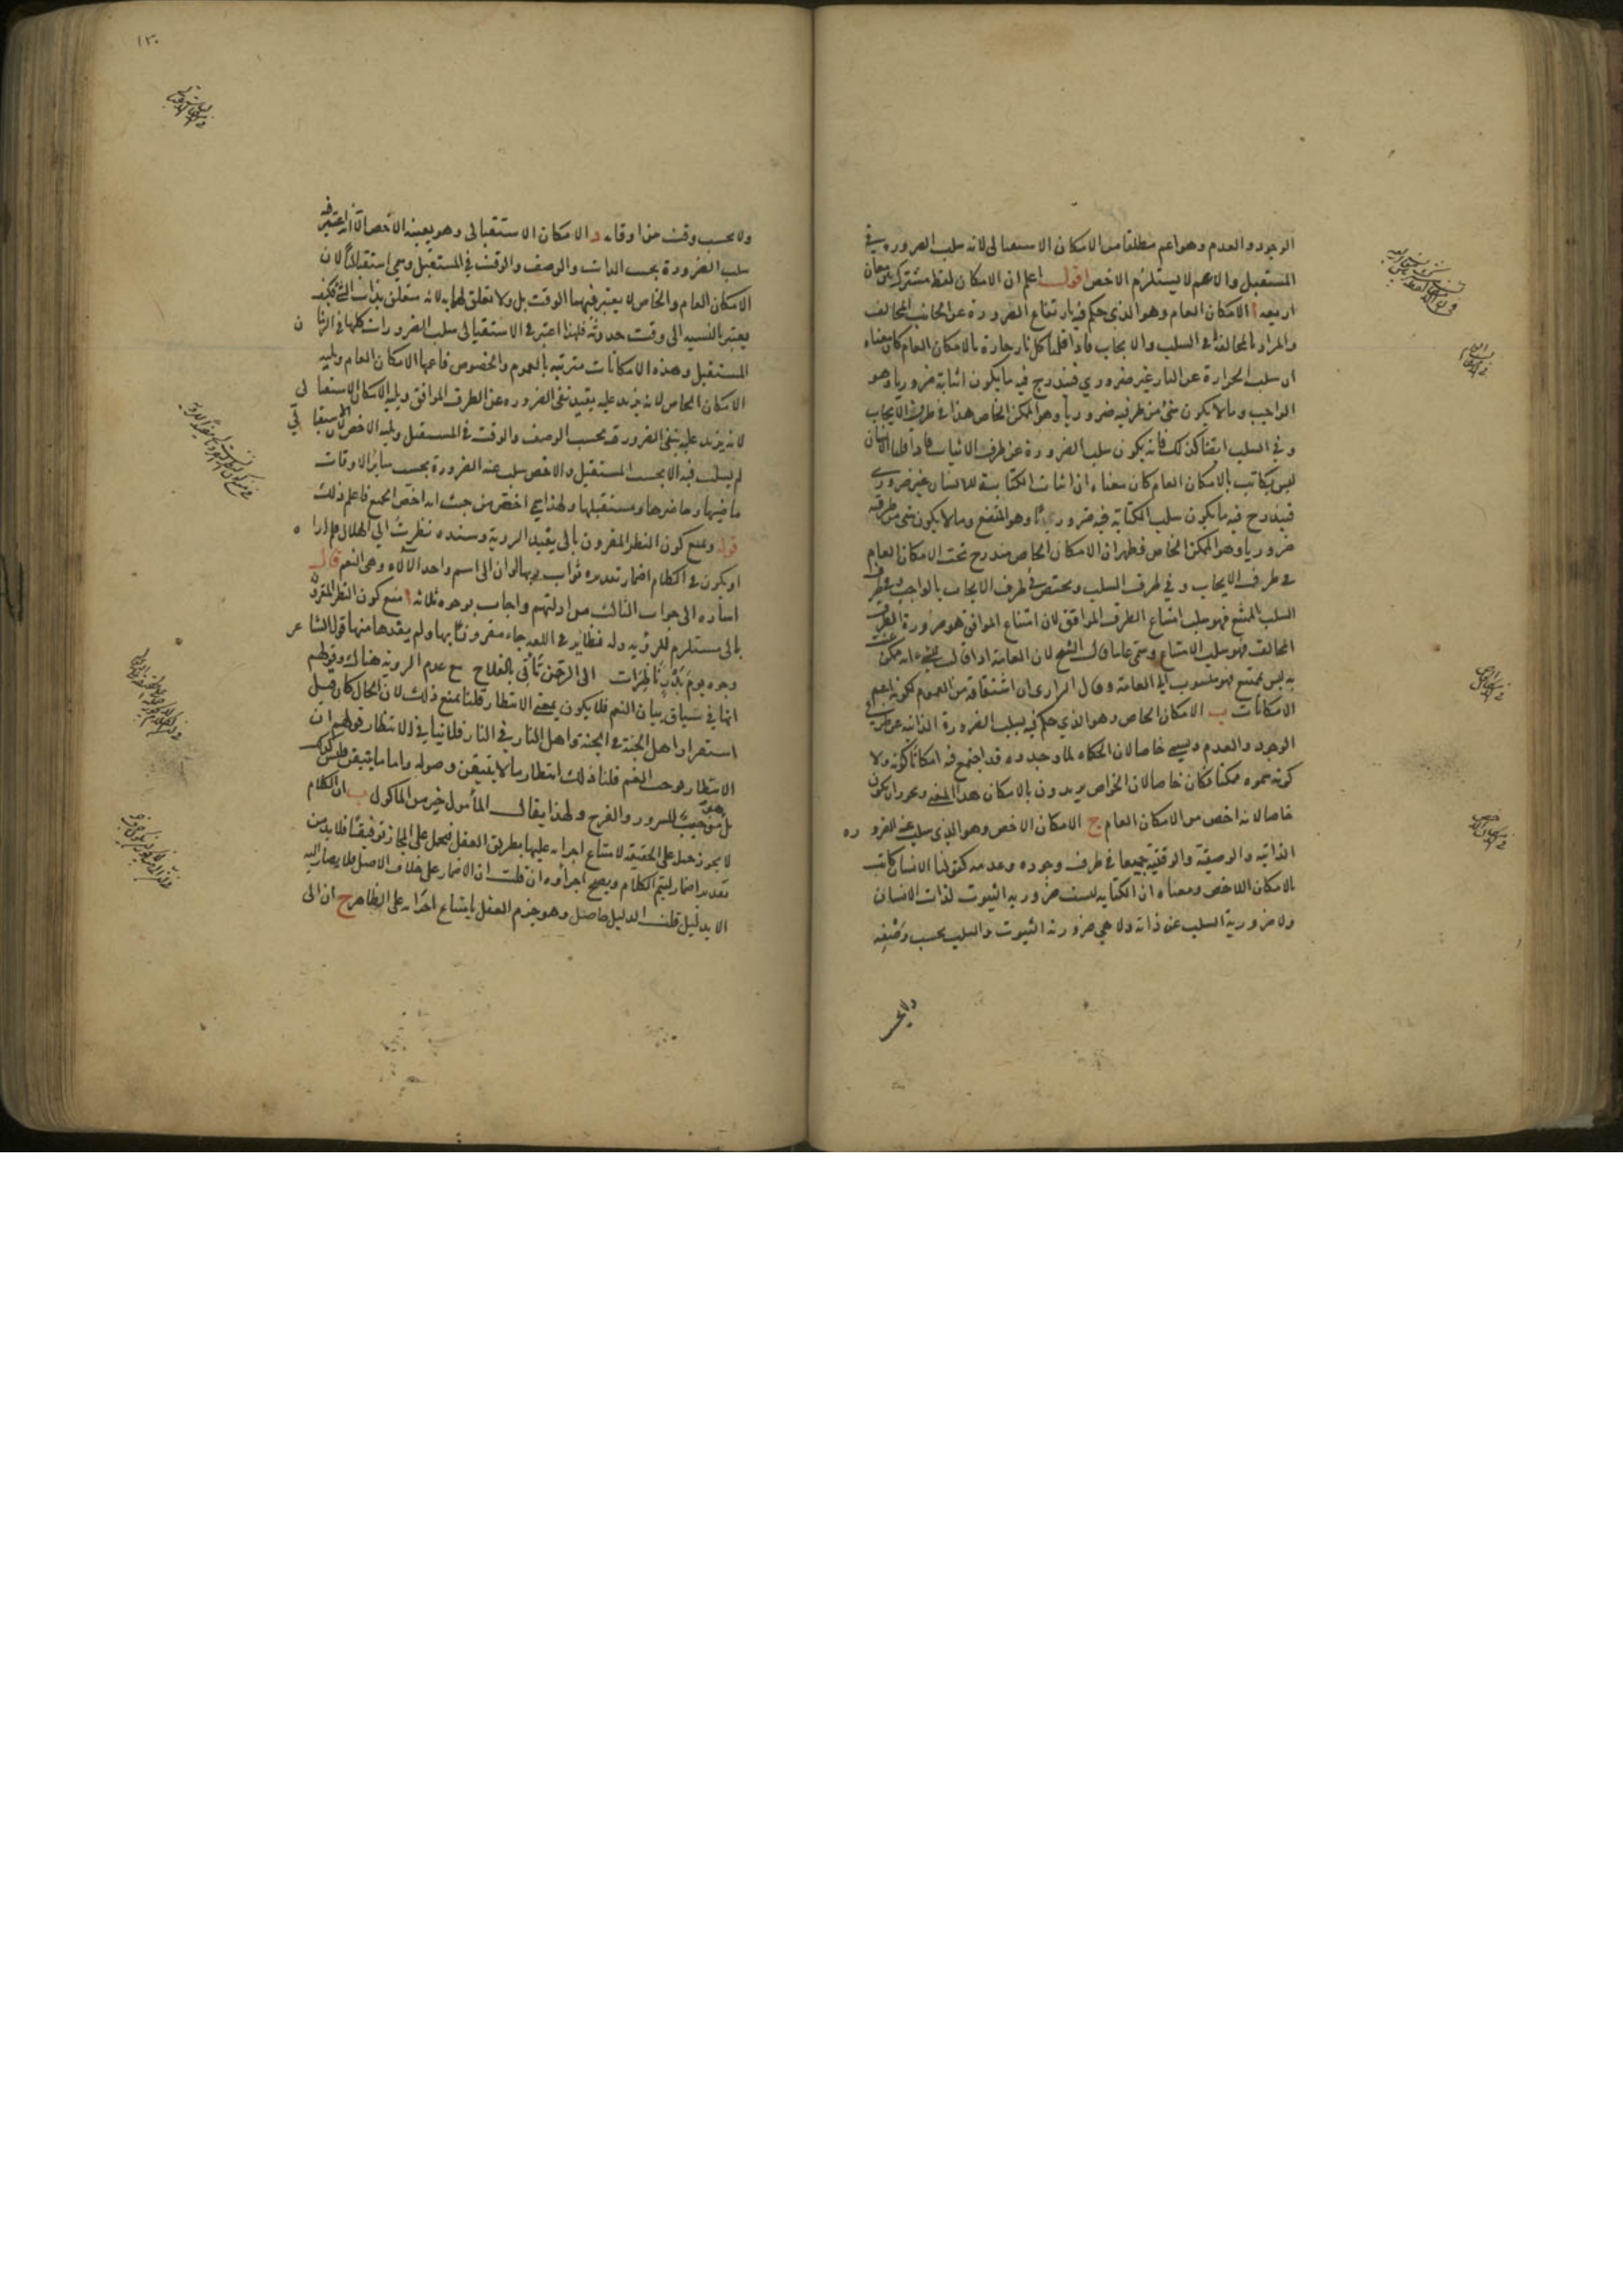 الوجود والعدم وهو اعم مطلقا من الامكان الاستقبالى لانه سلب الضروره فى
المستقبل والاعم لا يستلزم الاخص اقول اعلم ان الامكان لفظ مشترك بين معان
اربعه ا الامكان العام وهو الذى حكم فيه بارتفاع الضرورة عن الجانب المخالف
والمراد بالمخالفة فى السلب والايجاب فاذا قلنا كل نار حارة بالامكان العام كان معناه
ان سلب الحرارة عن النار غير ضروري فيندرج فيه ما يكون اثباته ضروريا وهو
الواجب وما لا يكون شئ من طرفيه ضروريا وهو الممكن الخاص هذا فى طرف الايجاب
وفى السلب ايضا كذلك فانه يكون سلب الضرورة عن طرف الاثبات فاذا قلنا الانسان
ليس بكاتب بالامكان العام كان معناه ان اثبات الكتابة للانسان غير ضرورى
فيندرج فيه ما يكون سلب الكتابة فيه ضروريا وهو الممتنع وما لا يكون شئ من طرفيه
ضروريا وهو الممكن الخاص فظهر ان الامكان الخاص مندرج تحت الامكان العام
فى طرف الايجاب و فى طرف السلب ويختص فى طرف الايجاب بالواجب وفى طرف
السلب الممتنع فهو سلب امتناع الطرف الموافق لان امتناع الموافق هو ضرورة الطرف
المخالف فهو سلب الامتناع وسمى عاميا قال الشيخ لان العامة اذا قالت للشئ انه ممكن عنت
به ليس بممتنع فهو منسوب الى العامة وقال الرازى ان اشتقاقه من العموم لكونه اعم
الامكانات ب الامكان الخاص وهو الذي حكم فيه بسلب الضرورة الذاتيه عن طرفى
الوجود والعدم ويسمى خاصا لان الحكماء لما وجدوه قد اجتمع فيه امكانا كونه ولا
كونه سموه ممكنا فكان خاصا لان الخواص يريدون بالامكان هذا المعنى ويجوز ان يكون
خاصا لانه اخص من الامكان العام ج الامكان الاخص وهو الذي سلب عنه الضروره
الذاتيه والوصفية والوقتية جميعا فى طرف وجوده وعدمه كقولنا الانسان كاتب
بالامكان الاخص ومعناه ان الكتابه ليست ضروريه الثبوت لذات الانسان
ولا ضرورية السلب عن ذاته ولا هى ضرورية الثبوت والسلب بحسب وصفه
ولا بحسب
١٣٠
ولا بحسب وقت من اوقاته د الامكان الاستقبالى وهو بعينه الاخص الا انه اعتبر فيه
سلب الضرورة بحسب الذات والوصف والوقت فى المستقبل وسمى استقباليا لان
الامكان العام والخاص لا يعتبر فيهما الوقت بل ولا تعلق لهما به لانه متعلق بذات الشئ فكيف
يعتبر بالنسبه الى وقت حدوثه فلهذا اعتبر فى الاستقبالى سلب الضرورات كلها فى الزمان
المستقبل وهذه الامكانات مترتبه بالعموم والخصوص فاعمها الامكان العام ويليه
الامكان الخاص لانه يزيد عليه بقيد نفى الضروره عن الطرف الموافق ويليه الامكان الاستقبالى
لانه يزيد عليه بنفى الضرورة بحسب الوصف والوقت فى المستقبل ويليه الاخص لان الاستقبالى
لم يسلب فيه الا بحسب المستقبل والاخص سلب عنه الضرورة بحسب سائر الاوقات
ماضيها وحاضرها ومستقبلها ولهذا سمى اخص من حيث انه اخص الجميع فاعلم ذلك
قوله ويمنع كون النظر المقرون بالى يفيد الروية وسنده نظرت الى الهلال فلم اراه
او يكون فى الكلام اضمار تقديره ثواب ربها او ان الى اسم واحد الآلاء وهى النعم قال
اشاره الى جواب الثالث من ادلتهم واجاب بوجوه ثلاثه ا منع كون النظر المقرون
بالى مستلزم للرؤيه وله نظائر فى اللغه جاء مقرونا بها ولم يفدها منها قول الشاعر
وجوه يوم بدر ناظرات الى الرحمن تأتى بالفلاح مع عدم الروية هناك وقولهم
انها فى سياق بيان النعم فلا يكون بمعنى الانتظار قلنا نمنع ذلك لان الحال كان قبل
استقرار اهل الجنة فى الجنة واهل النار فى النار قلنا ثانيا فى الانتظار قولهم ان
الانتظار يوجب الغم قلنا ذلك انتظار ما لا يتيقن وصوله واما ما يتيقن فليس كذلك
بل هو موجب للسرور والفرح ولهذا يقال المأمول خير من الماكول ب ان الكلام
لا يجوز حمله على الحقيقه لامتناع اجرائه عليها بطريق العقل فيحمل على المجاز توفيقا فلا بد من
تقدير اضمار ليتم الكلام ويصح اجراؤه ان قلت ان الاضمار على خلاف الاصل فلا يصار اليه
الا بدليل قلت الدليل حاصل وهو جزم العقل بامتناع اجرائه على الظاهر ج ان الى